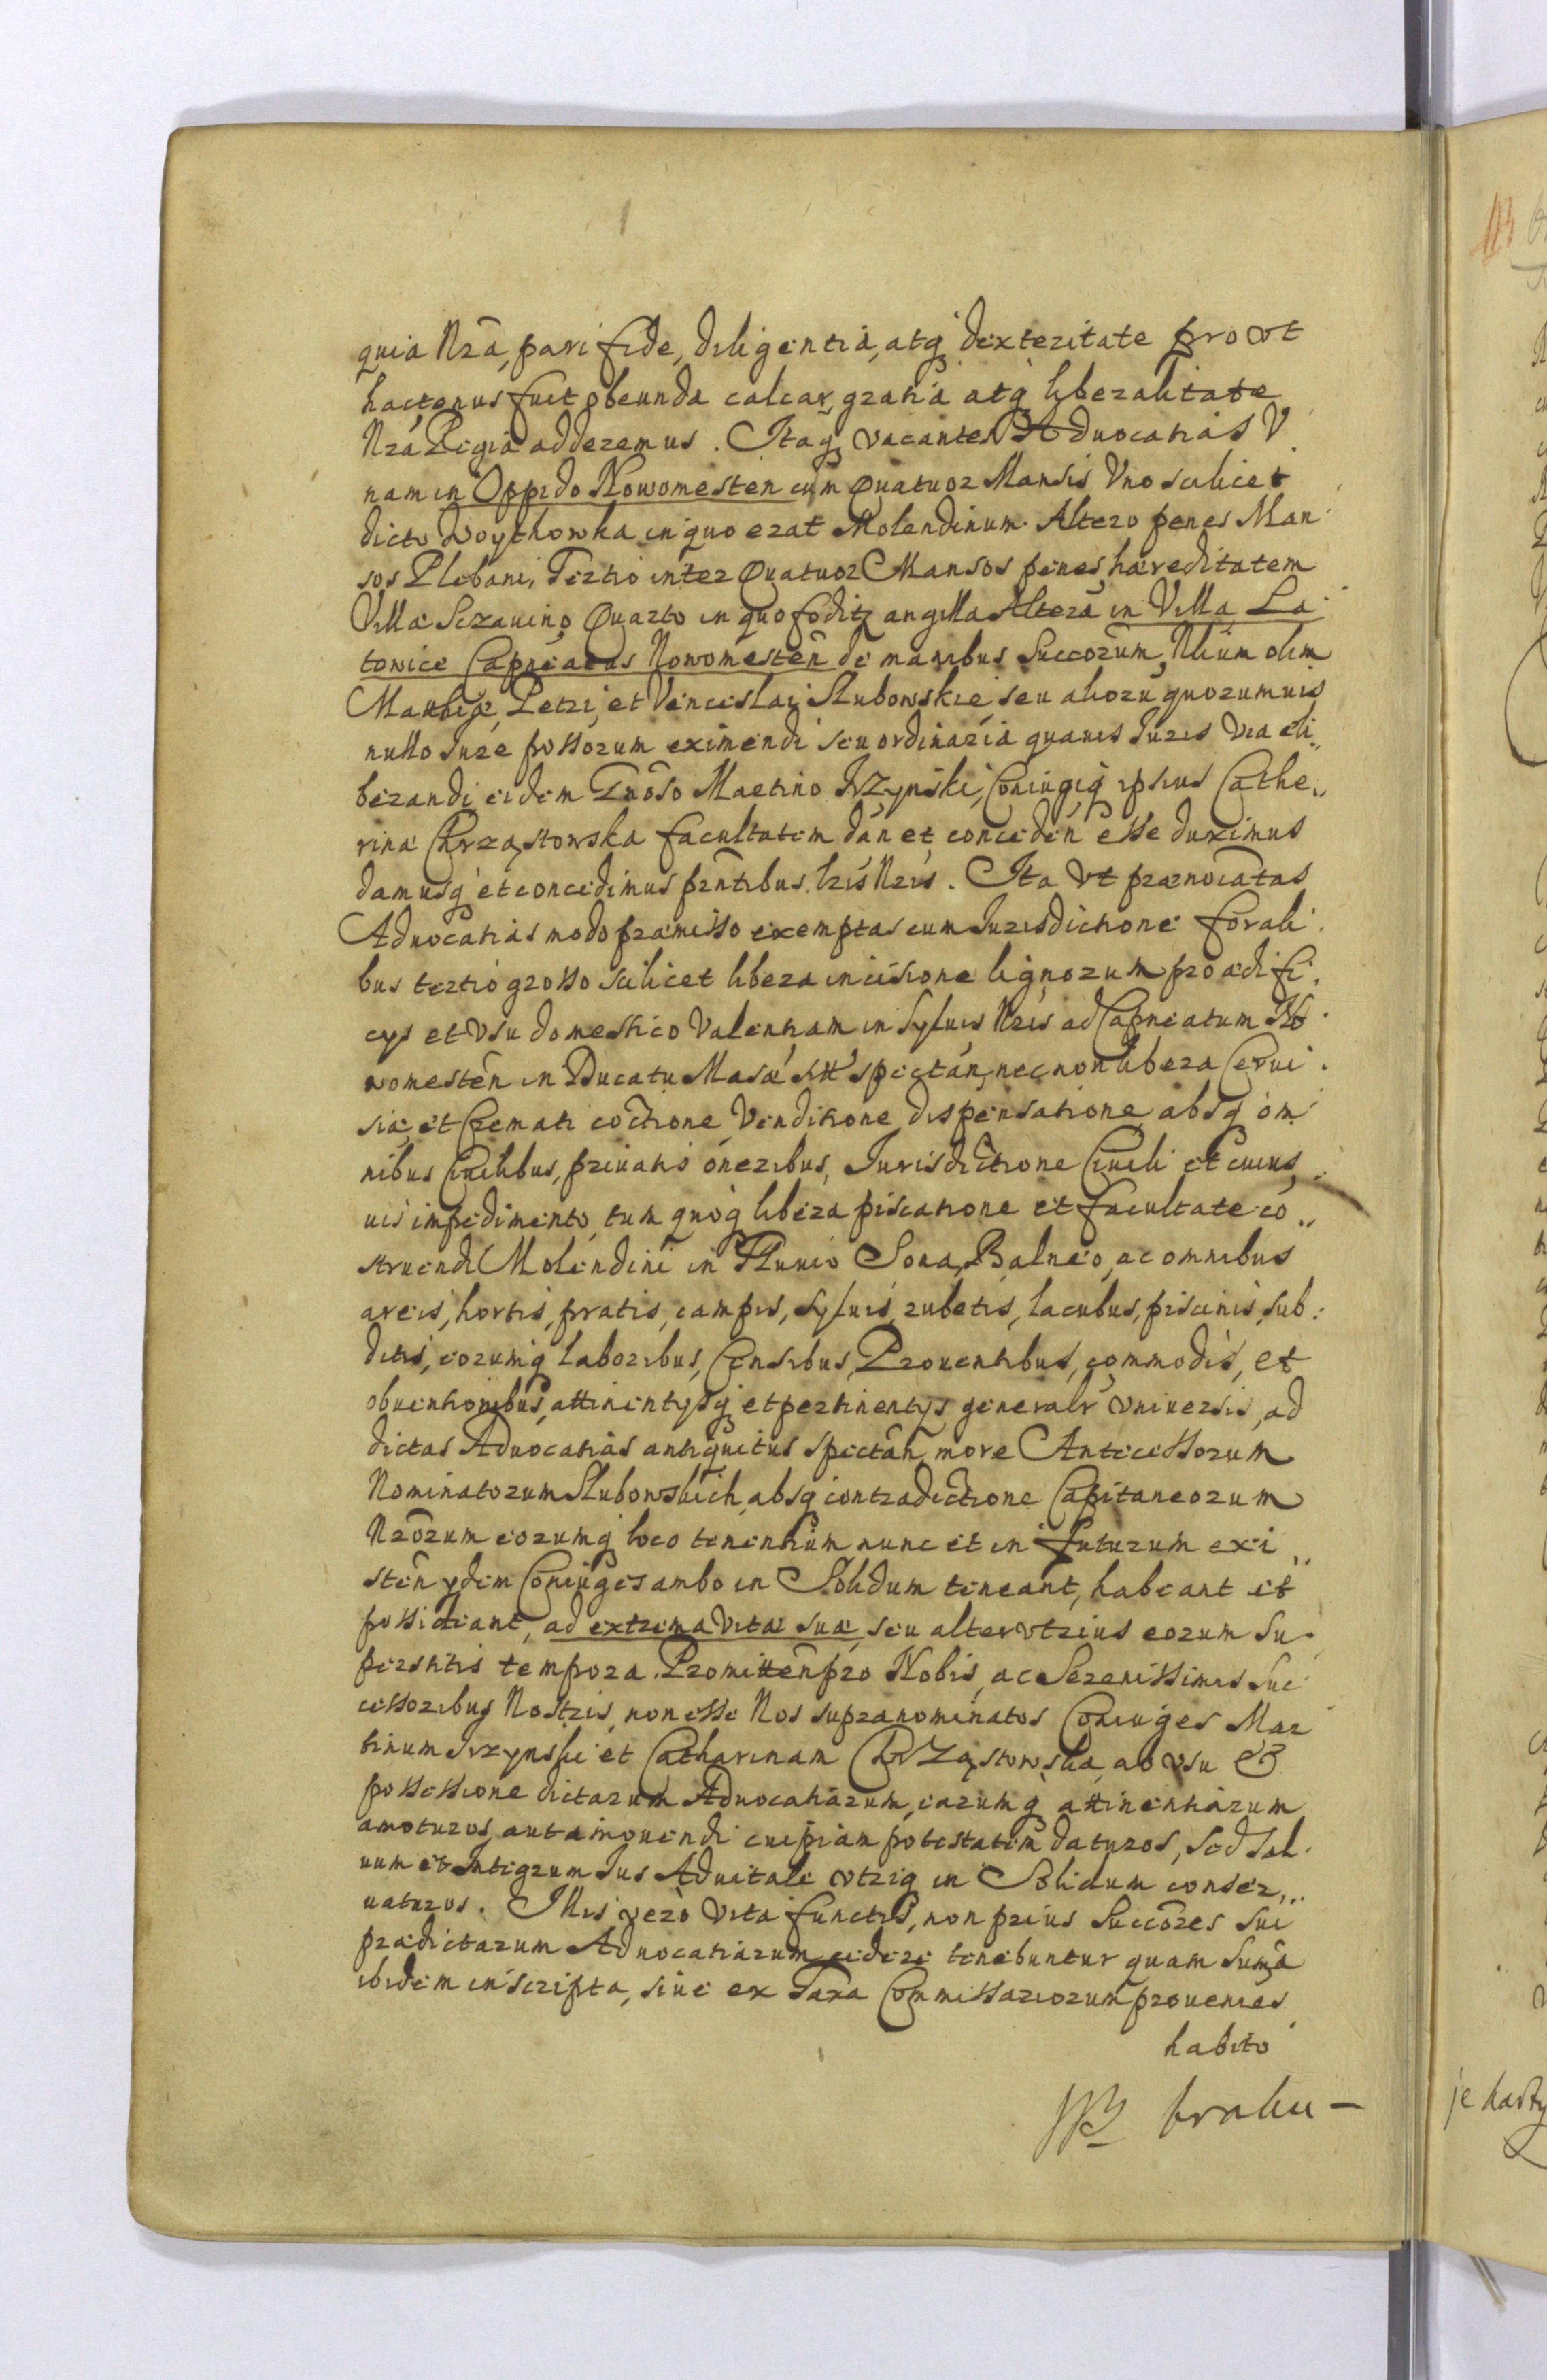 quia Nrã, pari fide, diligentiá, atq́ dexteritate prout
hactenus fuit obeunda calcar, gratiá atq́ liberalitate
Nrá Regiá adderemus. Itaq́ vacantes Aduocatiás V
nam in Oppido Nowomesten cum Quatuor Mansis Vno scilicet
dicto Woythowka in quo erat Molendinum. Altero penes Man
sos Plebani, Tertio inter Quatuor Mansos penes hæreditatem
Villæ Sczauino Quarto in quo foditr argilla Altera in Villa La
towice Capneatus Nowomesteñ de manibus Succorum, Nlium olim
Matthiæ, Petri, et Venceslai Slubowskie, seu aliorũ quorumuis
nullo Jure possorum eximendi seu ordinariá quauis Juris via eli„
berandi eidem Gnõso Martino Jrzynski, Coniugiq́ ipsius Cathe„
rinæ Chrząstowska facultatem dañ et conceden̄ esse duximus
damusq́ et concedimus pr̃ntibus lris Nris. Ita vt prænotãtas
Aduocatiás modo præmisso exemptas cum Jurisdictione forali
bus tertió grosso scilicet libera incisione lignorum pro ædifi
cys et vsu domestico Valentiam in Syluis Nris ad Capneatum No
womesteñ in Ducatu Masoæ sitt spectañ, necnon libera Cerui
siæ, et Cremati coctione, Venditione, dispensatione, absq́ om
nibus Ciuilibus, priuatis oneribus, Jurisdictione Ciuili et cuius
uis impedimento, tum quoq́ libera piscatione et facultate cõ„
struendi Molendini in Fluuio Sona, Balneo, ac omnibus
areis, hortis, pratis, campis, syluis, rubetis, lacubus, piscinis, sub:
ditis, eorumq́ laboribus, Censibus, Prouentibus, commodis, et
obuentionibus, attinentysq́ et pertinentys generalr vniuersis, ad
dictas Aduocatiás antiquitus spectañ, more Antecessorum
Nominatorum Slubowskich, absq́ contradictione Capitaneorum
Nrõrum eorumq́ loco tenentium nunc et in futurum exi„
steñ ydem Coniuges ambo in Solidum teneant, habeant et
possideant, ad extrema vitæ suæ, seu alterutrius eorum su
perstitis tempora. Promitteñ pro Nobis, ac Serenissimis Suc
cessoribus Nostris, non esse Nos supranominatos Coniuges Mar
tinum Jrzynski et Catharinam Chrząstowska, ab vsu et
possessione dictarum Aduocatiarum, earumq́ attinentiarum
amoturos, aut amouendi cuipiam potestatem daturos, sed sal
uum et Integrum Jus Aduitale vtriq́ in Solidum conser„
uaturos. Illis verò vita functis, non prius Succõres sui
prædictarum Aduocatiarum cedere tenebuntur quam sum̃a
ibidem inscripta, siue ex Taxa Commissariorum proueniẽs
habito